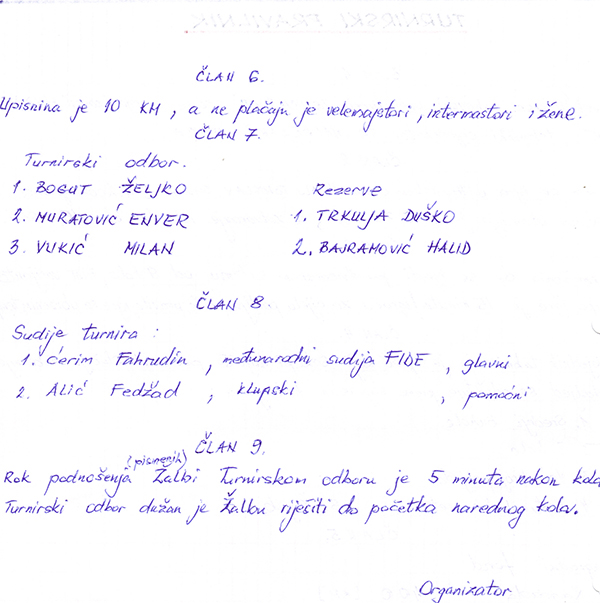 ČLAN 6.
Upisnina je 10 KM, a ne plaćaju je velemajstori, intermastori i žene.
ČLAN 7.
Turnirski odbor.
1. BOGUT ŽELJKO
2. MURATOVIĆ ENVER
3. VUKIĆ MILAN
Rezerve
1. TRKULJA DUŠKO
2. BAJRAMOVIĆ HALID
ČLAN 8
Sudije turnira :
1. Ćerim Fahrudin, međunarodni sudija FIDE, glavni
2. Alić Fedžad, klupski, pomoćni
ČLAN 9.
(pismenih)
Rok podnošenja Žalbi Turnirskom odboru je 5 minuta nakon kola
Turnirski odbor dužan je Žalbu riješiti do početka narednog kola.
Organizator